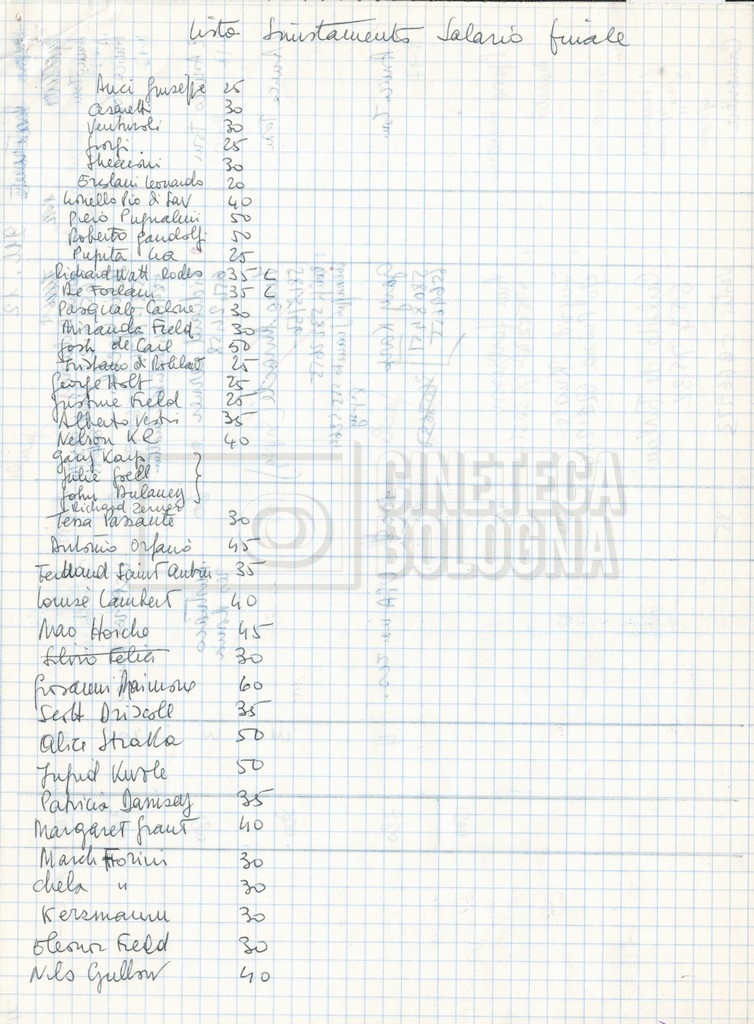 Lista Smistamento Salario finale
Anci Giuseppe 25
Casaretti 30
Venturoli 30
Giorgi 25
30
Leonardo 20
Lionello Pio di Sav 40
Piero Pugnalini 50
Roberto Gandolfi 50
Pupita Lea 25
Richard Watt Rodes 35 C
De Forlani 35 C
Pasquale Calone 30
Miranda Field 30
Gosh de Care 50
Tristano di Robilant 25
George Holt 25
Justine Field 25
Alberto Vestri 35
Nelson KL 40
Gary Karp
Julie Goell
John Dulaney
Richard Zenner
Tessa Passante 30
Antonio Orfanò 45
Ferdinand Saint Aubin 35
Louise Lambert 40
Mao Horche 45
Silvio Felici 30
Giovanni Maimone 60
Scott Driscoll 35
Alice Straka 50
Ingrid 50
Patricia Damsey 35
Margaret Grant 40
March Fiorini 30
Chela " 30
Kerzmann 30
Eleonor Field 30
Nils Gullow 40
CINETECA
BOLOGNA